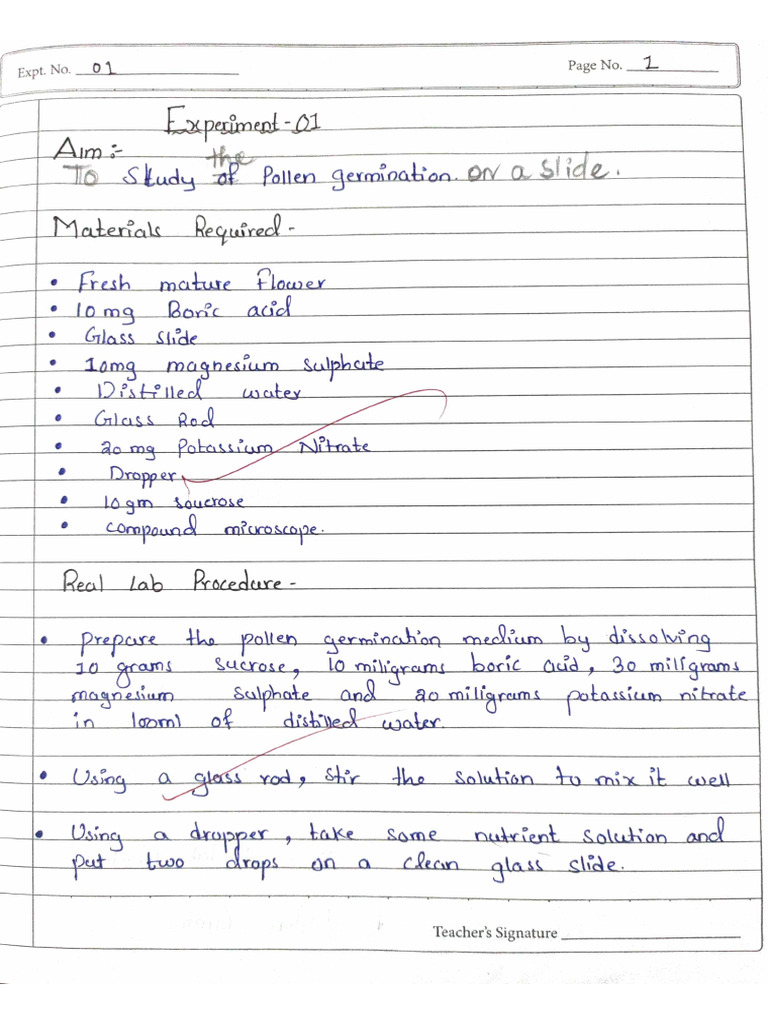 Expt. No. 01
Page No. 1
Experiment-01
Aim :-
the
To Study of Pollen germination. on a slide.
Materials Required -
• Fresh mature flower
• 10 mg Boric acid
• Glass slide
• 10mg magnesium sulphate
• Distilled water
• Glass Rod
• 20 mg Potassium Nitrate
• Dropper
• 10 gm soucrose
• compound microscope.
Real Lab Procedure -
• Prepare the pollen germination medium by dissolving
10 grams sucrose, 10 miligrams boric acid, 30 miligrams
magnesium sulphate and 20 miligrams potassium nitrate
in 100ml of distilled water.
• Using a glass rod, stir the solution to mix it well
• Using a dropper, take some nutrient solution and
put two drops on a clean glass slide.
Teacher's Signature